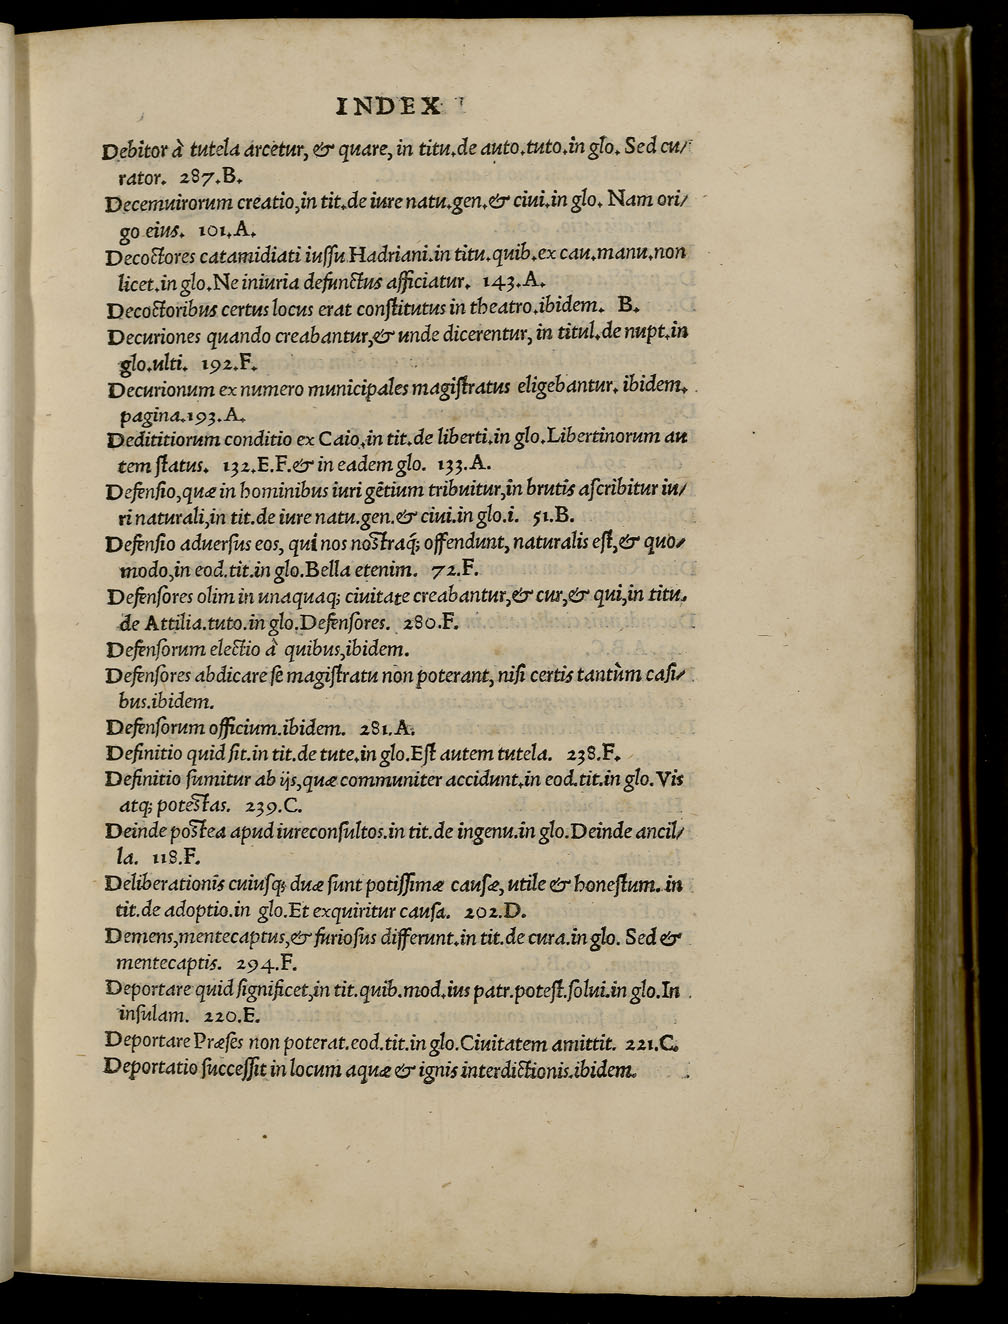 INDEX
Debitor à tutela arcetur, & quare, in titu.de auto.tuto.in glo. Sed cu/
rator. 287.B.
Decemuirorum creatio,in tit.de iure natu.gen.& ciui.in glo. Nam ori/
go eius. 101.A.
Decoctores catamidiati iuſſu Hadriani.in titu.quib.ex cau.manu.non
licet.in glo.Ne iniuria defunctus afficiatur. 143.A.
Decoctoribus certus locus erat conſtitutus in theatro.ibidem. B.
Decuriones quando creabantur,& unde dicerentur, in titul.de nupt.in
glo.ulti. 192.F.
Decurionum ex numero municipales magiſtratus eligebantur. ibidem.
pagina.193.A.
Dedititiorum conditio ex Caio,in tit.de liberti.in glo.Libertinorum au
tem ſtatus. 132.E.F.& in eadem glo. 133.A.
Defenſio,quæ in hominibus iuri gẽtium tribuitur,in brutis aſcribitur iu/
ri naturali,in tit.de iure natu.gen.& ciui.in glo.i. 51.B.
Defenſio aduerſus eos, qui nos noſtraq; offendunt, naturalis eſt,& quo/
modo,in eod.tit.in glo.Bella etenim. 72.F.
Defenſores olim in unaquaq; ciuitate creabantur,& cur,& qui,in titu.
de Attilia.tuto.in glo.Defenſores. 280.F.
Defenſorum electio à quibus,ibidem.
Defenſores abdicare ſe magiſtratu non poterant, niſi certis tantùm caſi/
bus.ibidem.
Defenſorum officium.ibidem. 281.A.
Definitio quid ſit.in tit.de tute.in glo.Eſt autem tutela. 238.F.
Definitio ſumitur ab ijs,quæ communiter accidunt.in eod.tit.in glo.Vis
atq; poteſtas. 239.C.
Deinde poſtea apud iureconſultos.in tit.de ingenu.in glo.Deinde ancil/
la. 118.F.
Deliberationis cuiuſq; duæ ſunt potiſſimæ cauſæ, utile & honeſtum. in
tit.de adoptio.in glo.Et exquiritur cauſa. 202.D.
Demens,mentecaptus,& furioſus differunt.in tit.de cura.in glo. Sed &
mentecaptis. 294.F.
Deportare quid ſignificet,in tit.quib.mod.ius patr.poteſt.ſolui.in glo.In
inſulam. 220.E.
Deportare Præſes non poterat.eod.tit.in glo.Ciuitatem amittit. 221.C.
Deportatio ſucceſſit in locum aquæ & ignis interdictionis.ibidem.